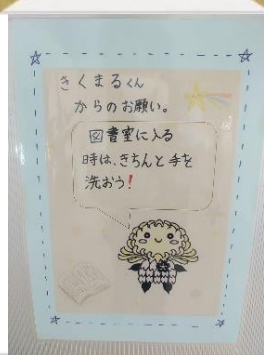 きくまるくん
からのお願い。
図書室に入る
時は、きちんと手を
洗おう!